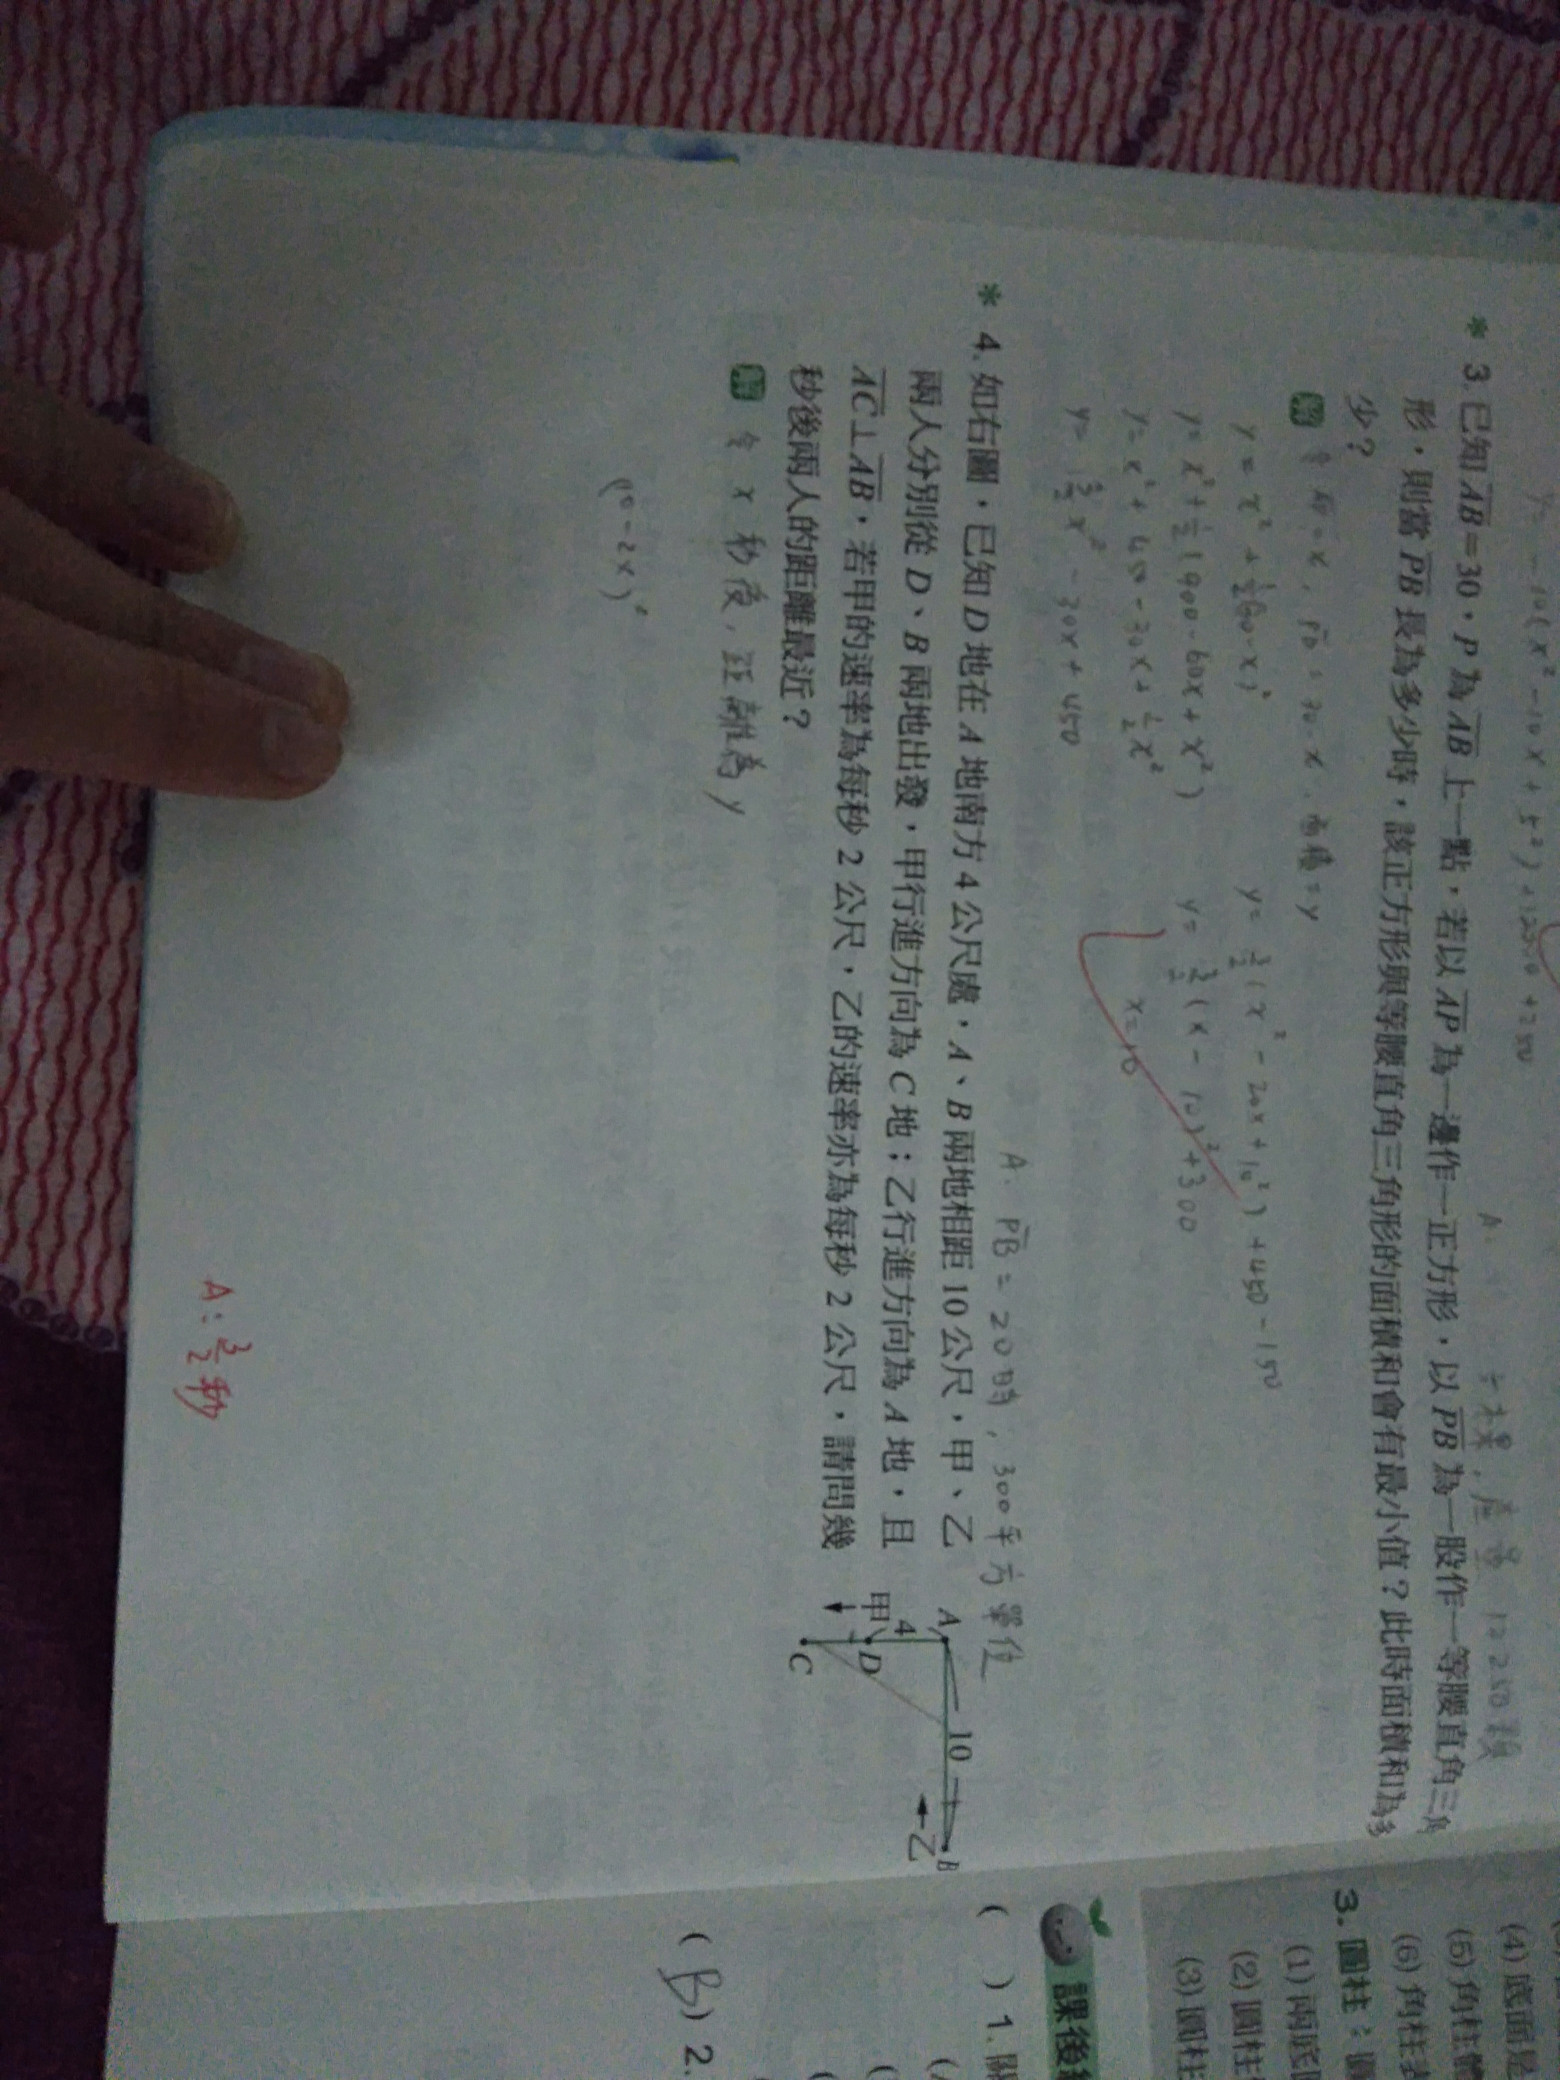 y = -10(x² - 10x + 5²) + 1250 + 250
A.
* 3. 已知AB=30，P為AB上一點，若以AP為一邊作一正方形，以PB為一股作一等腰直角三角
形，則當PB長為多少時，該正方形與等腰直角三角形的面積和會有最小值？此時面積和為多
少？
解
y = x² + ½(30-x)²
y = x² + ½(900 - 60x + x²)
y = x² + 450 - 30x + ½x²
y = 3/2 x² - 30x + 450
y = 3/2(x² - 20x + 10²) + 450 - 150
y = 3/2(x - 10)² + 300
x = 10
A. PB = 20時, 300平方單位
* 4. 如右圖，已知D地在A地南方4公尺處，A、B兩地相距10公尺，甲、乙
兩人分別從D、B兩地出發，甲行進方向為C地；乙行進方向為A地，且
AC⊥AB，若甲的速率為每秒2公尺，乙的速率亦為每秒2公尺，請問幾
秒後兩人的距離最近？
A
10
B
4
甲
D
乙
C
解 令 x 秒後, 距離為 y
(10 - 2x)²
A: 3/2 秒
(4) 底面是
(5) 角柱
(6) 角柱
3. 圓柱：
(1) 兩底
(2) 圓柱
(3) 圓柱
課後
( ) 1.
( B ) 2.